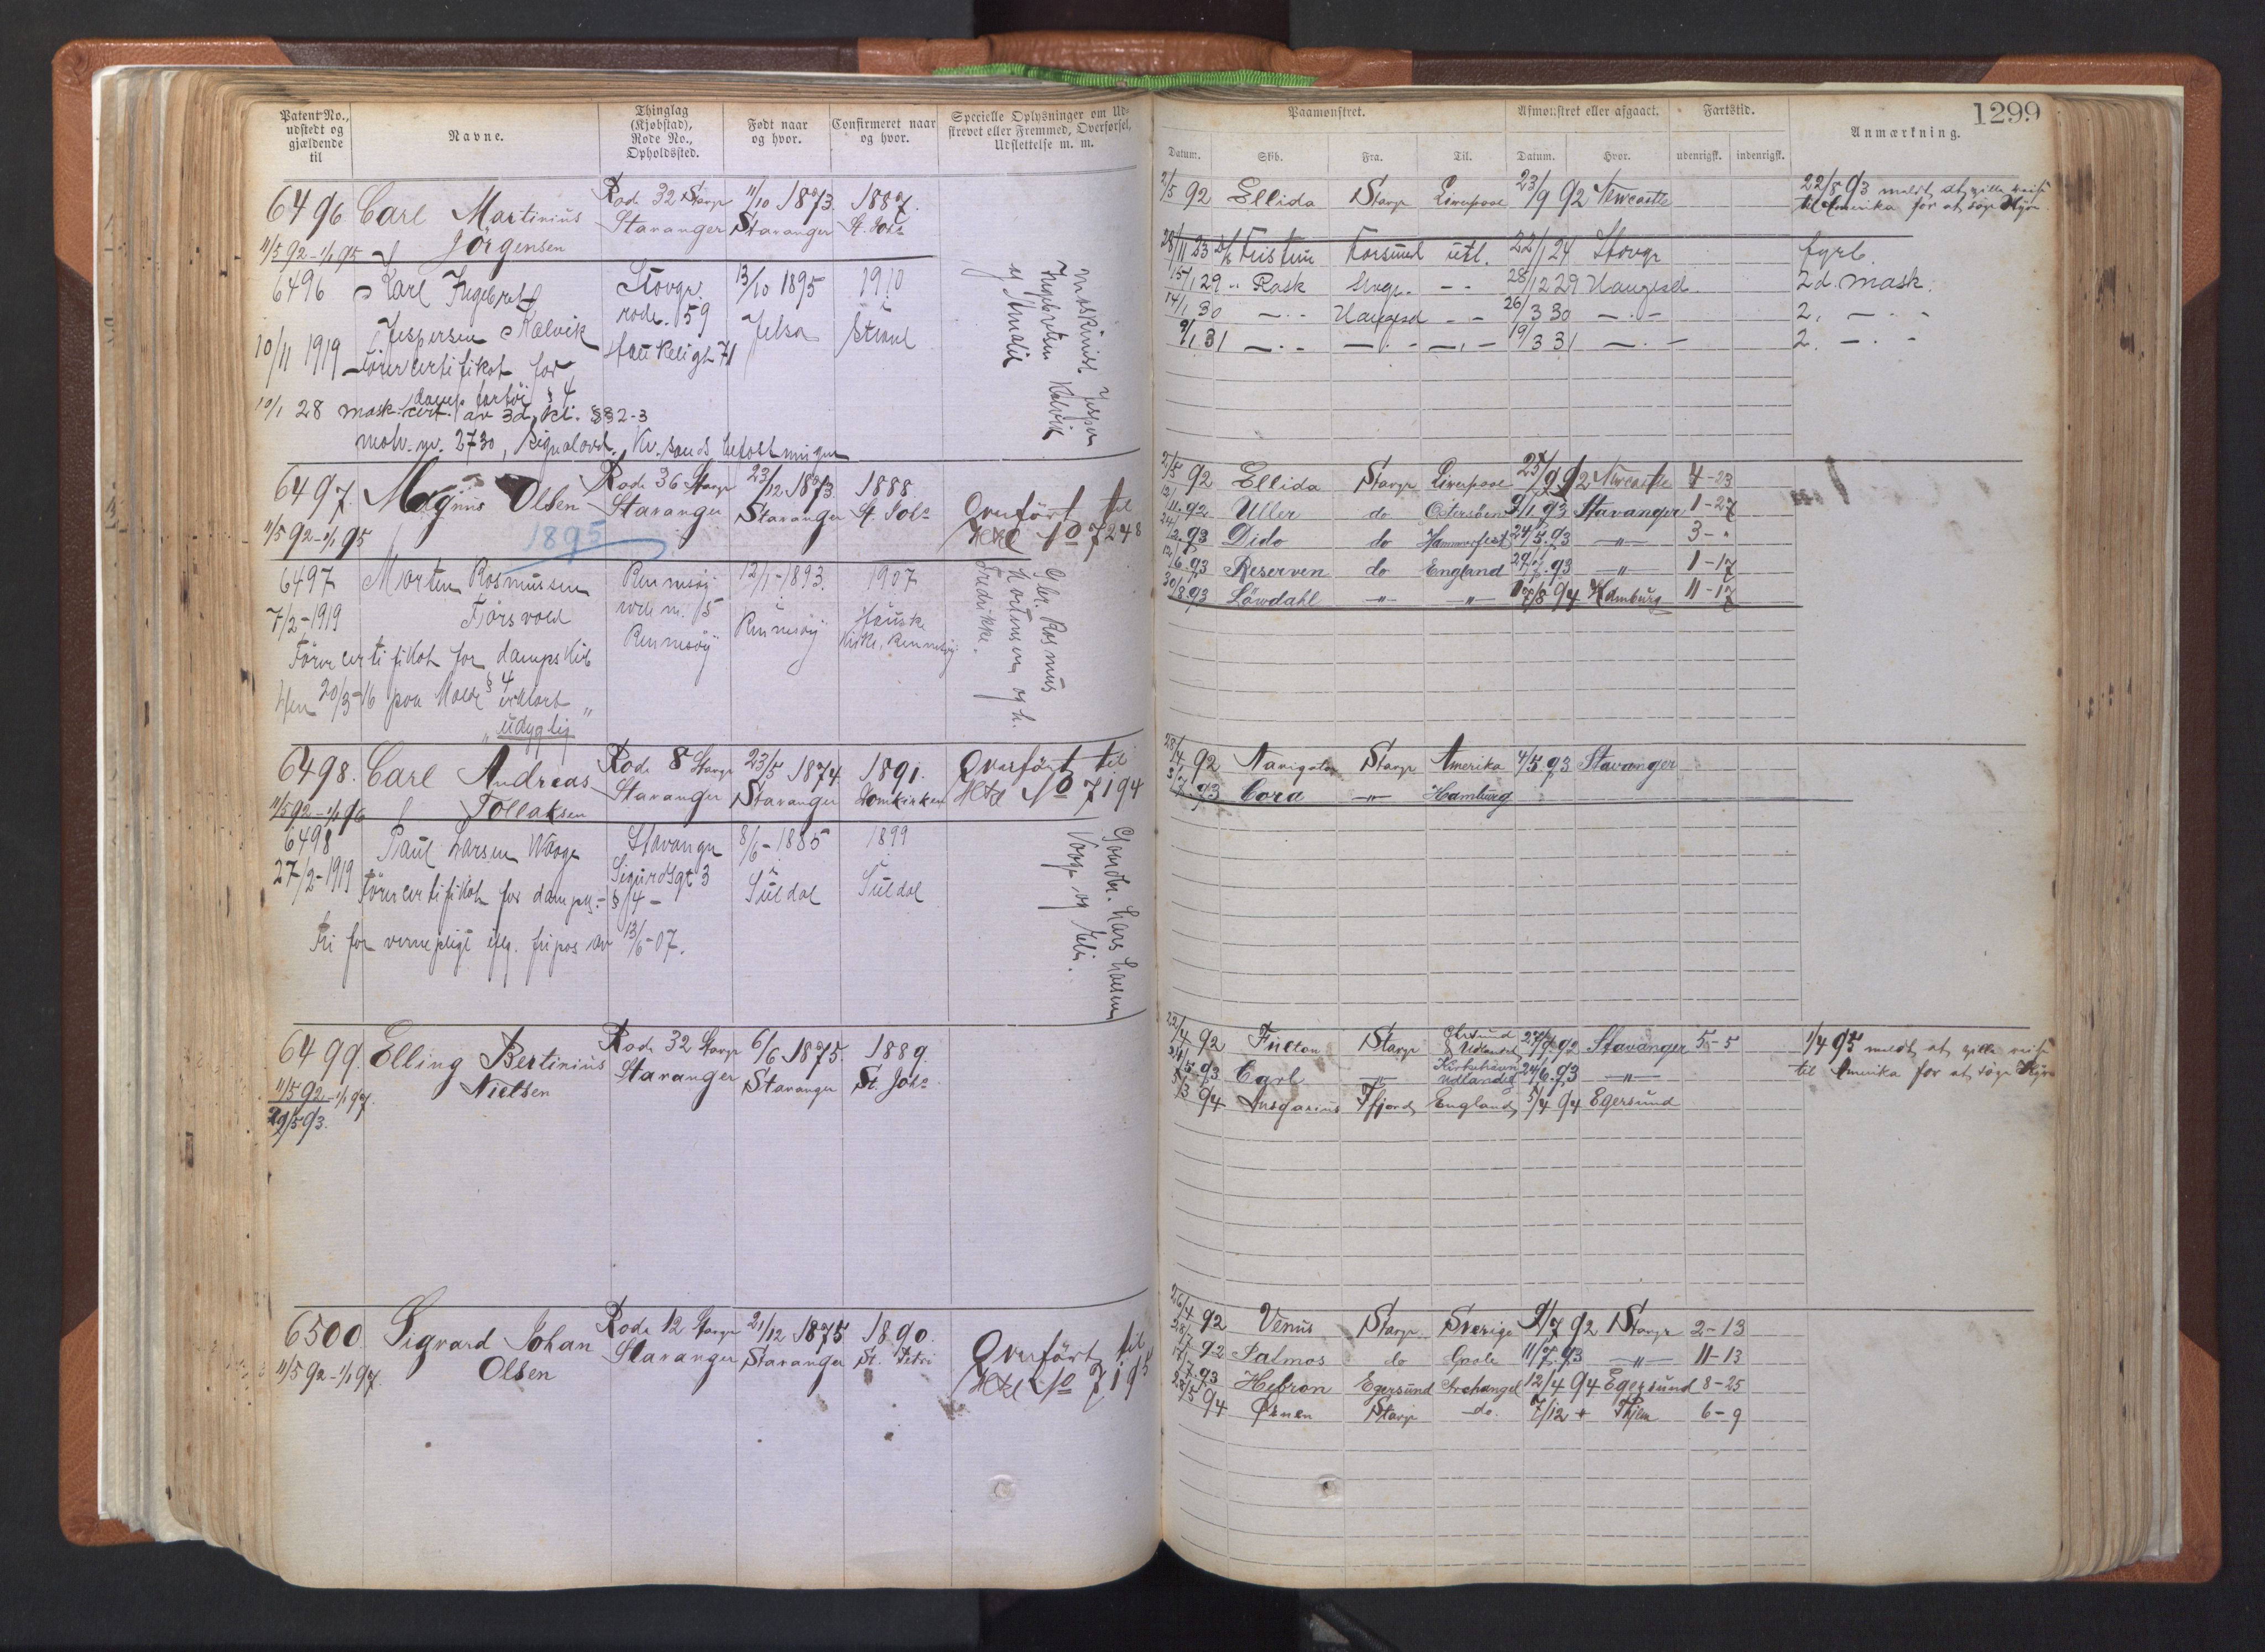 Patent No., udstedt og gjældende til
Navne.
Thinglag (Kjøbstad), Rode No., Opholdssted.
Født naar og hvor.
Confirmeret naar og hvor.
Specielle Oplysninger om Udskrevet eller Fremmed, Overførsel, Udslettelse m. m.
6496 Carl Martinius Rode 32 Stavgr 11/10 1873. 1887.
Jörgensen Stavanger Stavanger St. Johs
11/5 92 - 1/1 95
6496 Karl Ingebret Stavgr. 13/10 1895 1910
Jespersen Kalvik rode. 59 Jelsa Strand
10/11 1919 Förercertifikat for Haukeligt 71
damp fartøi § 4
10/1 28 mask. cert. av 3d. kl. §§ 2-3
Maskinist Jesper
Ingebretsen Kalvik
og Amalie
6497. Magnus Olsen Rode 36 Stavgr 23/12 1873. 1888
Stavanger Stavanger St. Johs
11/5 92 - 1/1 95 1895
Overført til
Hovd No 7248
6497 Morten Rasmussen Rennesøy 12/1 - 1893. 1907
7/2 - 1919 rode nr. 5 Rennesøy
Förercertifikat for dampskib Rennesøy
§ 4
"udygtig"
Gbr. Rasmus
Mortensen og h.
Fredrikke.
6498. Carl Andreas Rode 8 Stavgr 23/5 1874 1891.
Tollaksen Stavanger Stavanger Domkirken
11/5 92 - 1/1 96
Overført til
Hovd No 7194
6498 Paul Larsen Vaage Stavanger 8/6 - 1885 1899
27/2 - 1919 Sigurdsgt 3 Suldal Suldal
Förercertifikat for dampsk. - § 4 -
Fri for vernepligt iflg. fripas av 13/6 - 07.
Gaardbr. Lars Larsen
Vaage og
6499. Elling Bertinius Rode 32 Stavgr 6/6 1875. 1889.
Nielsen Stavanger Stavanger St. Johs
11/5 92 - 1/1 97.
29/5 93.
6500. Sigvard Johan Rode 12 Stavgr 21/12 1875 1890.
Olsen Stavanger Stavanger St. Petri
11/5 92 - 1/1 97.
Overført til
Hovd No 7195
1299
Paamønstret.
Afmønstret eller afgaaet.
Fartstid.
Anmærkning.
Datum. Skib. Fra. Til. Datum. Hvor. udenrigsk. indenrigsk.
2/5 92 Ellida Stavgr Liverpool 23/9 92 Newcastle
22/8 93 meldt, at ville reise
til Amerika for at søge Hyre
28/11 23 Kristine Korsund utl. 22/1 24 Stavgr fyrb.
15/1 29 " Rask - - 28/12 29 Haugesd 2d. mask.
14/1 30 - " - Haugesd - - 26/3 30 - " - 2. - " -
9/1 31 - " - - " - - " - 19/3 31 - " - 2. - " -
2/5 92 Ellida Stavgr Liverpool 23/9 92 Newcastle 4-23
12/11 92 Uller do Østersøen 9/1 93 Stavanger 1-27
24/2 93 Dido do Hammerfest 24/5 93 " 3-"
12/6 93 Reserven do England 29/7 93 " 1-17
30/8 93 Løwdahl " " 17/8 94 Hamburg 11-17
28/4 92 Navigator Stavgr Amerika 4/5 93 Stavanger
3/7 93 Cora " Hamburg
22/4 92 Fulton Stavgr Udlandet 27/9 92 Stavanger 5-5
1/4 95 meldt at ville reise
til Amerika for at søge Hyre
93 Carl " Udlandet 24/6 93 "
5/3 94 Ansgarius Ffjord England 5/4 94 Egersund
26/4 92 Venus Stavgr Sverige 9/7 92 Stavgr 2-13
28/7 92 Palmos do Goole 11/7 93 " 11-13
17/7 93 Hebron Egersund Archangel 12/4 94 Egersund 8-25
28/5 94 Ørnen Stavgr do. 7/12 6-9